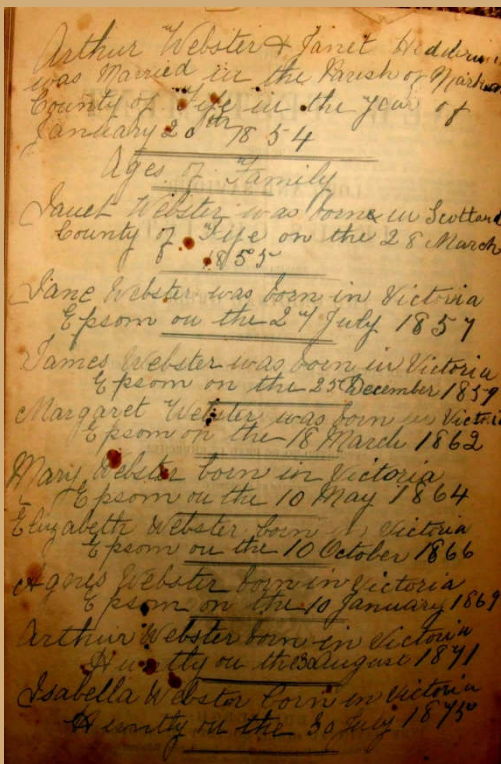 Arthur Webster & Janet
was Married in the Parish of
County of Fife in the year of
January 20th 1854
Ages of Family
Janet Webster was borne in Scotland
County of Fife on the 28 March
1855
Jane Webster was born in Victoria
Epsom on the 27 July 1857
James Webster was born in Victoria
Epsom on the 25 December 1859
Margaret Webster was born in Victoria
Epsom on the 18 March 1862
Mary Webster born in Victoria
Epsom on the 10 May 1864
Elizabeth Webster born in Victoria
Epsom on the 10 October 1866
Agnes Webster born in Victoria
Epsom on the 10 January 1869
Arthur Webster born in Victoria
Huntly on the August 1871
Isabella Webster born in Victoria
Huntly on the 30 July 1875